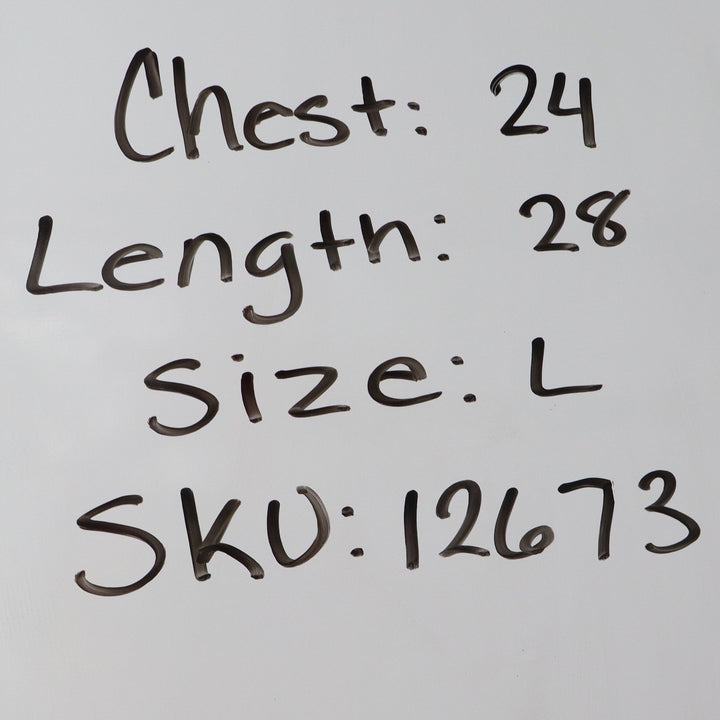 Chest: 24
Length: 28
Size: L
SKU: 12673